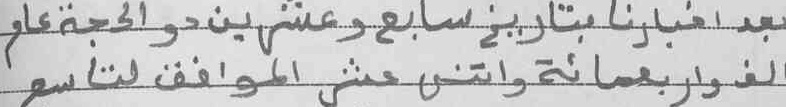 بعد اخبارنا بتاريخ سابع وعشرين ذو الحجة عام
الف واربعمائة واثنى عشر الموافق لتاسع